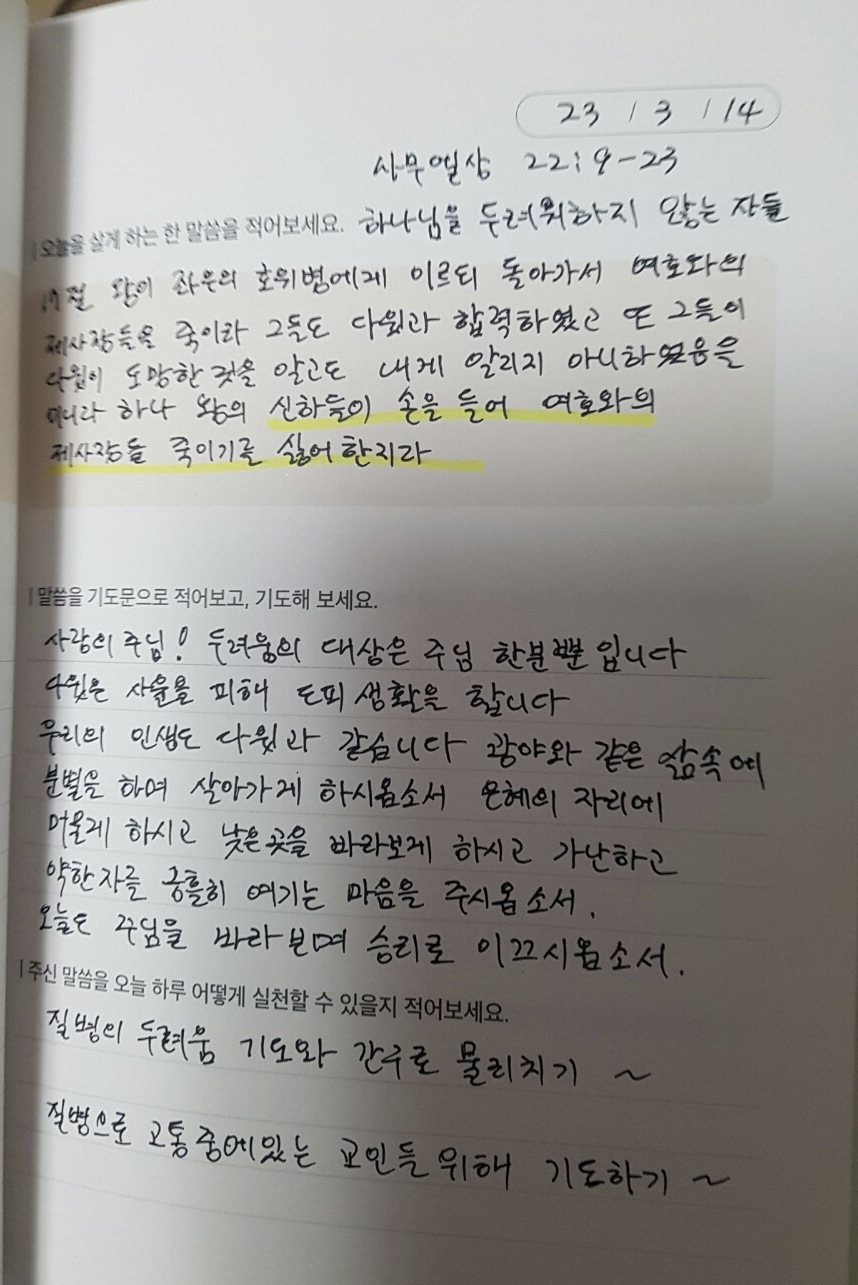 23 / 3 / 14
사무엘상 22:9-23
| 오늘을 살게 하는 한 말씀을 적어보세요. 하나님을 두려워하지 않는 자들
17절 왕이 좌우의 호위병에게 이르되 돌아가서 여호와의
제사장들을 죽이라 그들도 다윗과 합력하였고 또 그들이
다윗이 도망한 것을 알고도 내게 알리지 아니하였음을
이니라 하나 왕의 신하들이 손을 들어 여호와의
제사장들 죽이기를 싫어한지라
| 말씀을 기도문으로 적어보고, 기도해 보세요.
사랑의 주님! 두려움의 대상은 주님 한분뿐 입니다
다윗은 사울을 피해 도피 생활을 합니다
우리의 인생도 다윗과 같습니다 광야와 같은 삶속에
분별을 하며 살아가게 하시옵소서 은혜의 자리에
머물게 하시고 낮은 곳을 바라보게 하시고 가난하고
약한자를 긍휼히 여기는 마음을 주시옵소서.
오늘도 주님을 바라보며 승리로 이끄시옵소서.
| 주신 말씀을 오늘 하루 어떻게 실천할 수 있을지 적어보세요.
질병의 두려움 기도와 간구로 물리치기 ~
질병으로 고통중에있는 교인들 위해 기도하기 ~